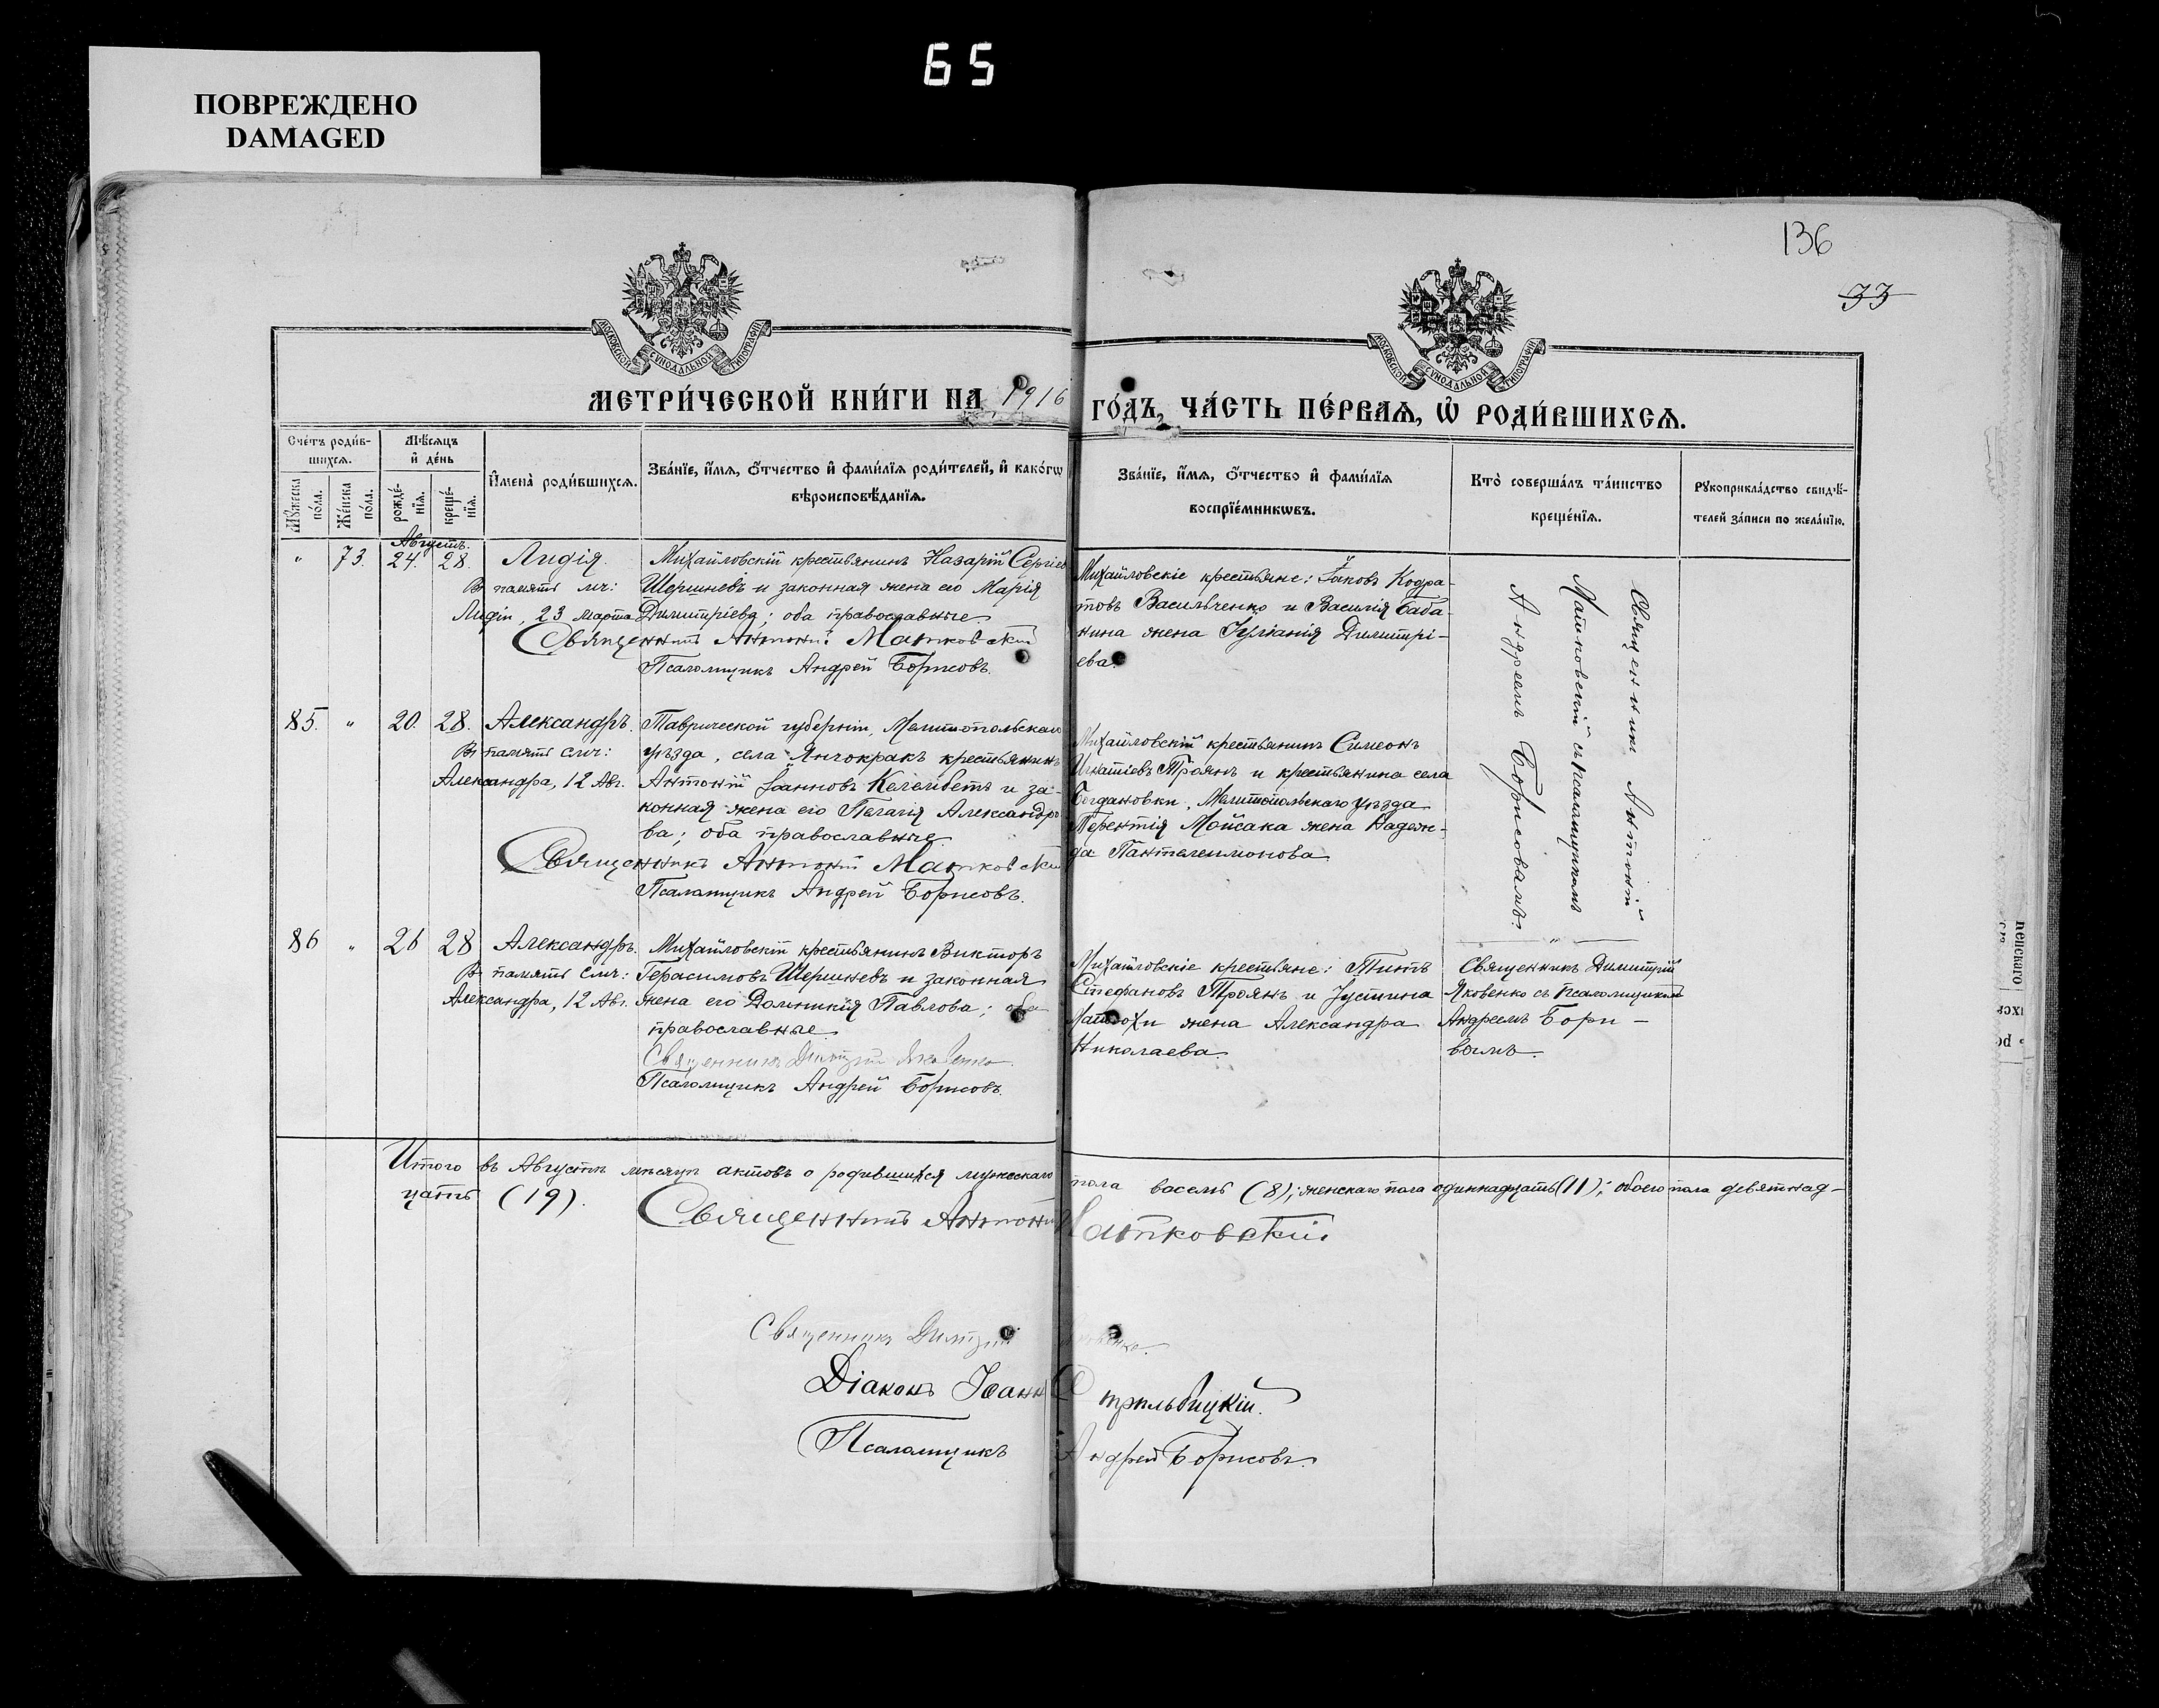 65
ПОВРЕЖДЕНО
DAMAGED
136
33
МОСКОВСКОЙ СѴНОДАЛЬНОЙ ТИПОГРАФІИ
МОСКОВСКОЙ СѴНОДАЛЬНОЙ ТИПОГРАФІИ
МЕТРИ́ЧЕСКОЙ КНИ́ГИ НА 1916 ГО́ДЪ, ЧА́СТЬ ПЕ́РВАЯ, Ѡ҆ РОДИ́ВШИХСЯ.
Сче́тъ роди́в-
шихся.
Мѣ́сяцъ
и҆ де́нь
Мꙋ́жеска по́ла.
Же́нска по́ла.
рожде́-
нїя.
креще́-
нїя.
И҆мена̀ роди́вшихся.
Зва́нїе, и҆́мя, ѻ҆́тчество и҆ фами́лїя роди́телей, и҆ како́гѡ
вѣроисповѣ́данїя.
Зва́нїе, и҆́мя, ѻ҆́тчество и҆ фами́лїя
воспрїе́мникѡвъ.
Кто̀ соверша́лъ та́инство
креще́нїя.
Рꙋкоприкла́дство свидѣ́-
телей за́писи по жела́нїю.
Августъ.
" 73. 24. 28. Лидія.
Въ память мч:
Лидіи, 23 Марта
Михайловскій крестьянинъ Назарій Сергіев
Шершневъ и законная жена его Марія
Димитріева; оба православные.
Священникъ Антоній Матковскій
Псаломщикъ Андрей Борисовъ.
Михайловскіе крестьяне: Іаковъ Кодра-
товъ Васильченко и Василія Баба-
нина жена Іуліанія Димитрі-
ева.
Священникъ Антоній
Матковскій съ псаломщикомъ
Андреемъ Борисовымъ.
85. " 20. 28. Александръ.
Въ память смч:
Александра, 12 Авг.
Таврической губерніи, Мелитопольскаго
уѣзда, села Янчокракъ крестьянинъ
Антоній Іоанновъ Келембетъ и за-
конная жена его Пелагія Александро
ва; оба православные.
Священникъ Антоній Матковскій
Псаломщикъ Андрей Борисовъ.
Михайловскій крестьянинъ Симеонъ
Игнатіевъ Троянъ и крестьянина села
Богдановки, Мелитопольскаго уѣзда
Терентія Мойсака жена Надеж-
да Пантелеимонова
86 " 26 28 Александръ.
Въ память смч:
Александра, 12 Авг.
Михайловскій крестьянинъ Викторъ
Герасимовъ Шершневъ и законная
жена его Домникія Павлова; оба
православные
Священникъ Димитрій Яковенко.
Псаломщикъ Андрей Борисовъ.
Михайловскіе крестьяне: Титъ
Стефановъ Троянъ и Іустина
жена Александра
Николаева
Священникъ Димитрій
Яковенко съ псаломщикомъ
Андреемъ Бори-
вымъ.
Итого въ Августѣ мѣсяцѣ актовъ о родившихся мужескаго пола восемь (8); женскаго пола одиннадцать (11); обоего пола девятнад-
цать (19).
Священникъ Антоній Матковскій
Священникъ Димитрій Яковенко.
Діаконъ Іоаннъ Стрильбицкій.
Псаломщикъ Андрей Борисовъ.